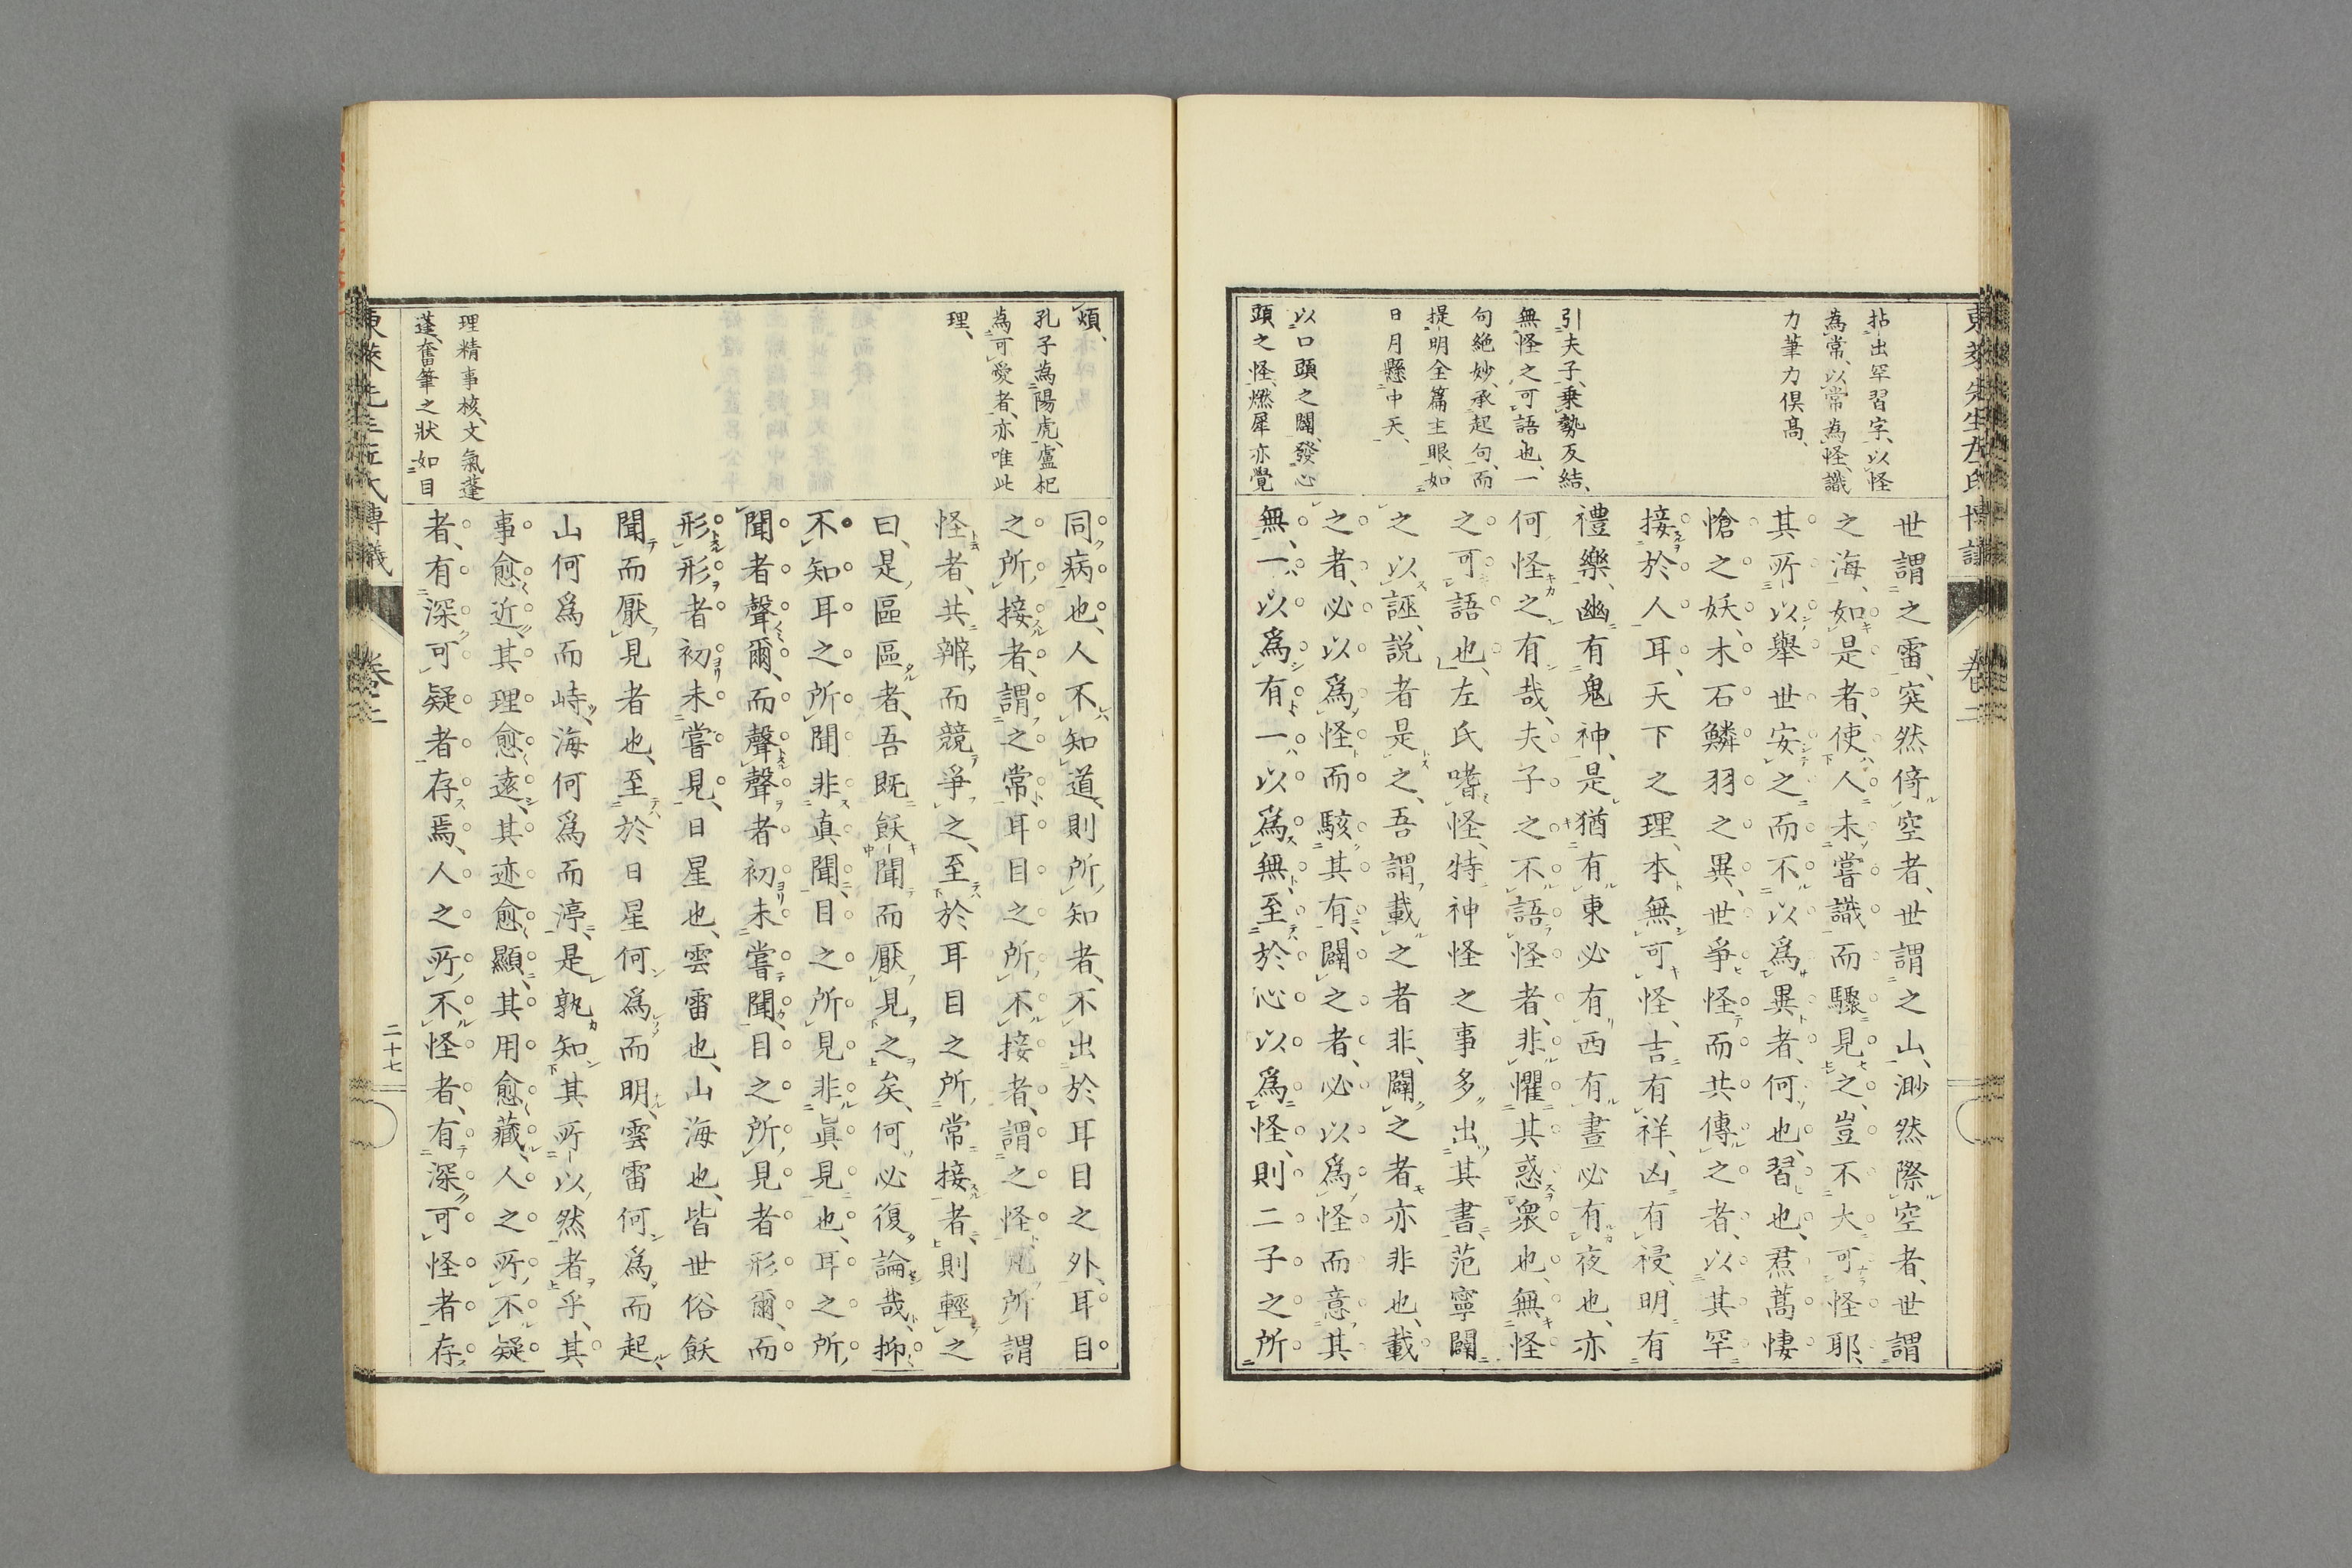 東萊先生左氏博議
卷二
拈出罕習字、以怪
為常、以常為怪、識
力筆力俱高、
引夫子、乗勢反結、
無怪之可語也、一
句絶妙、承起句、而
提明全篇主眼、如
日月懸中天、
以口頭之闢、發心
頭之怪、燃犀亦覺
世謂之雷、突然倚空者、世謂之山、渺然際空者、世謂
之海、如是者、使人未嘗識而驟見之、豈不大可怪耶、
其所以舉世安之而不以爲異者、何也、習也、焄蒿悽
愴之妖、木石鱗羽之異、世爭怪而共傳之者、以其罕
接於人耳、天下之理、本無可怪、吉有祥、凶有祲、明有
禮樂、幽有鬼神、是猶有東必有西有晝必有夜也、亦
何怪之有哉、夫子之不語怪者、非懼其惑衆也、無怪
之可語也、左氏嗜怪、特神怪之事多出其書、范寧闢
之以誣、説者是之、吾謂載之者非、闢之者亦非也、載
之者、必以爲怪而駭其有、闢之者、必以爲怪而意其
無、一以爲有、一以爲無、至於心以爲怪、則二子之所
煩、
孔子為陽虎、盧杞
為可愛者、亦唯此
理、
理精事核、文氣蓬
蓬、奮筆之狀如目
同病也、人不知道、則所知者、不出於耳目之外、耳目
之所接者、謂之常、耳目之所不接者、謂之怪、凡所謂
怪者、共辨而競爭之、至於耳目之所常接者、則輕之
曰、是區區者、吾既飫聞而厭見之矣、何必復論哉、抑
不知耳之所聞非真聞、目之所見非真見也、耳之所
聞者聲爾、而聲聲者初未嘗聞、目之所見者形爾、而
形形者初未嘗見、日星也、雲雷也、山海也、皆世俗飫
聞而厭見者也、至於日星何爲而明、雲雷何爲而起
山何爲而峙、海何爲而渟、是孰知其所以然者乎、其
事愈近、其理愈遠、其迹愈顯、其用愈藏、人之所不疑
者、有深可疑者存焉、人之所不怪者、有深可怪者存
東萊先生左氏博議
卷二
二十七